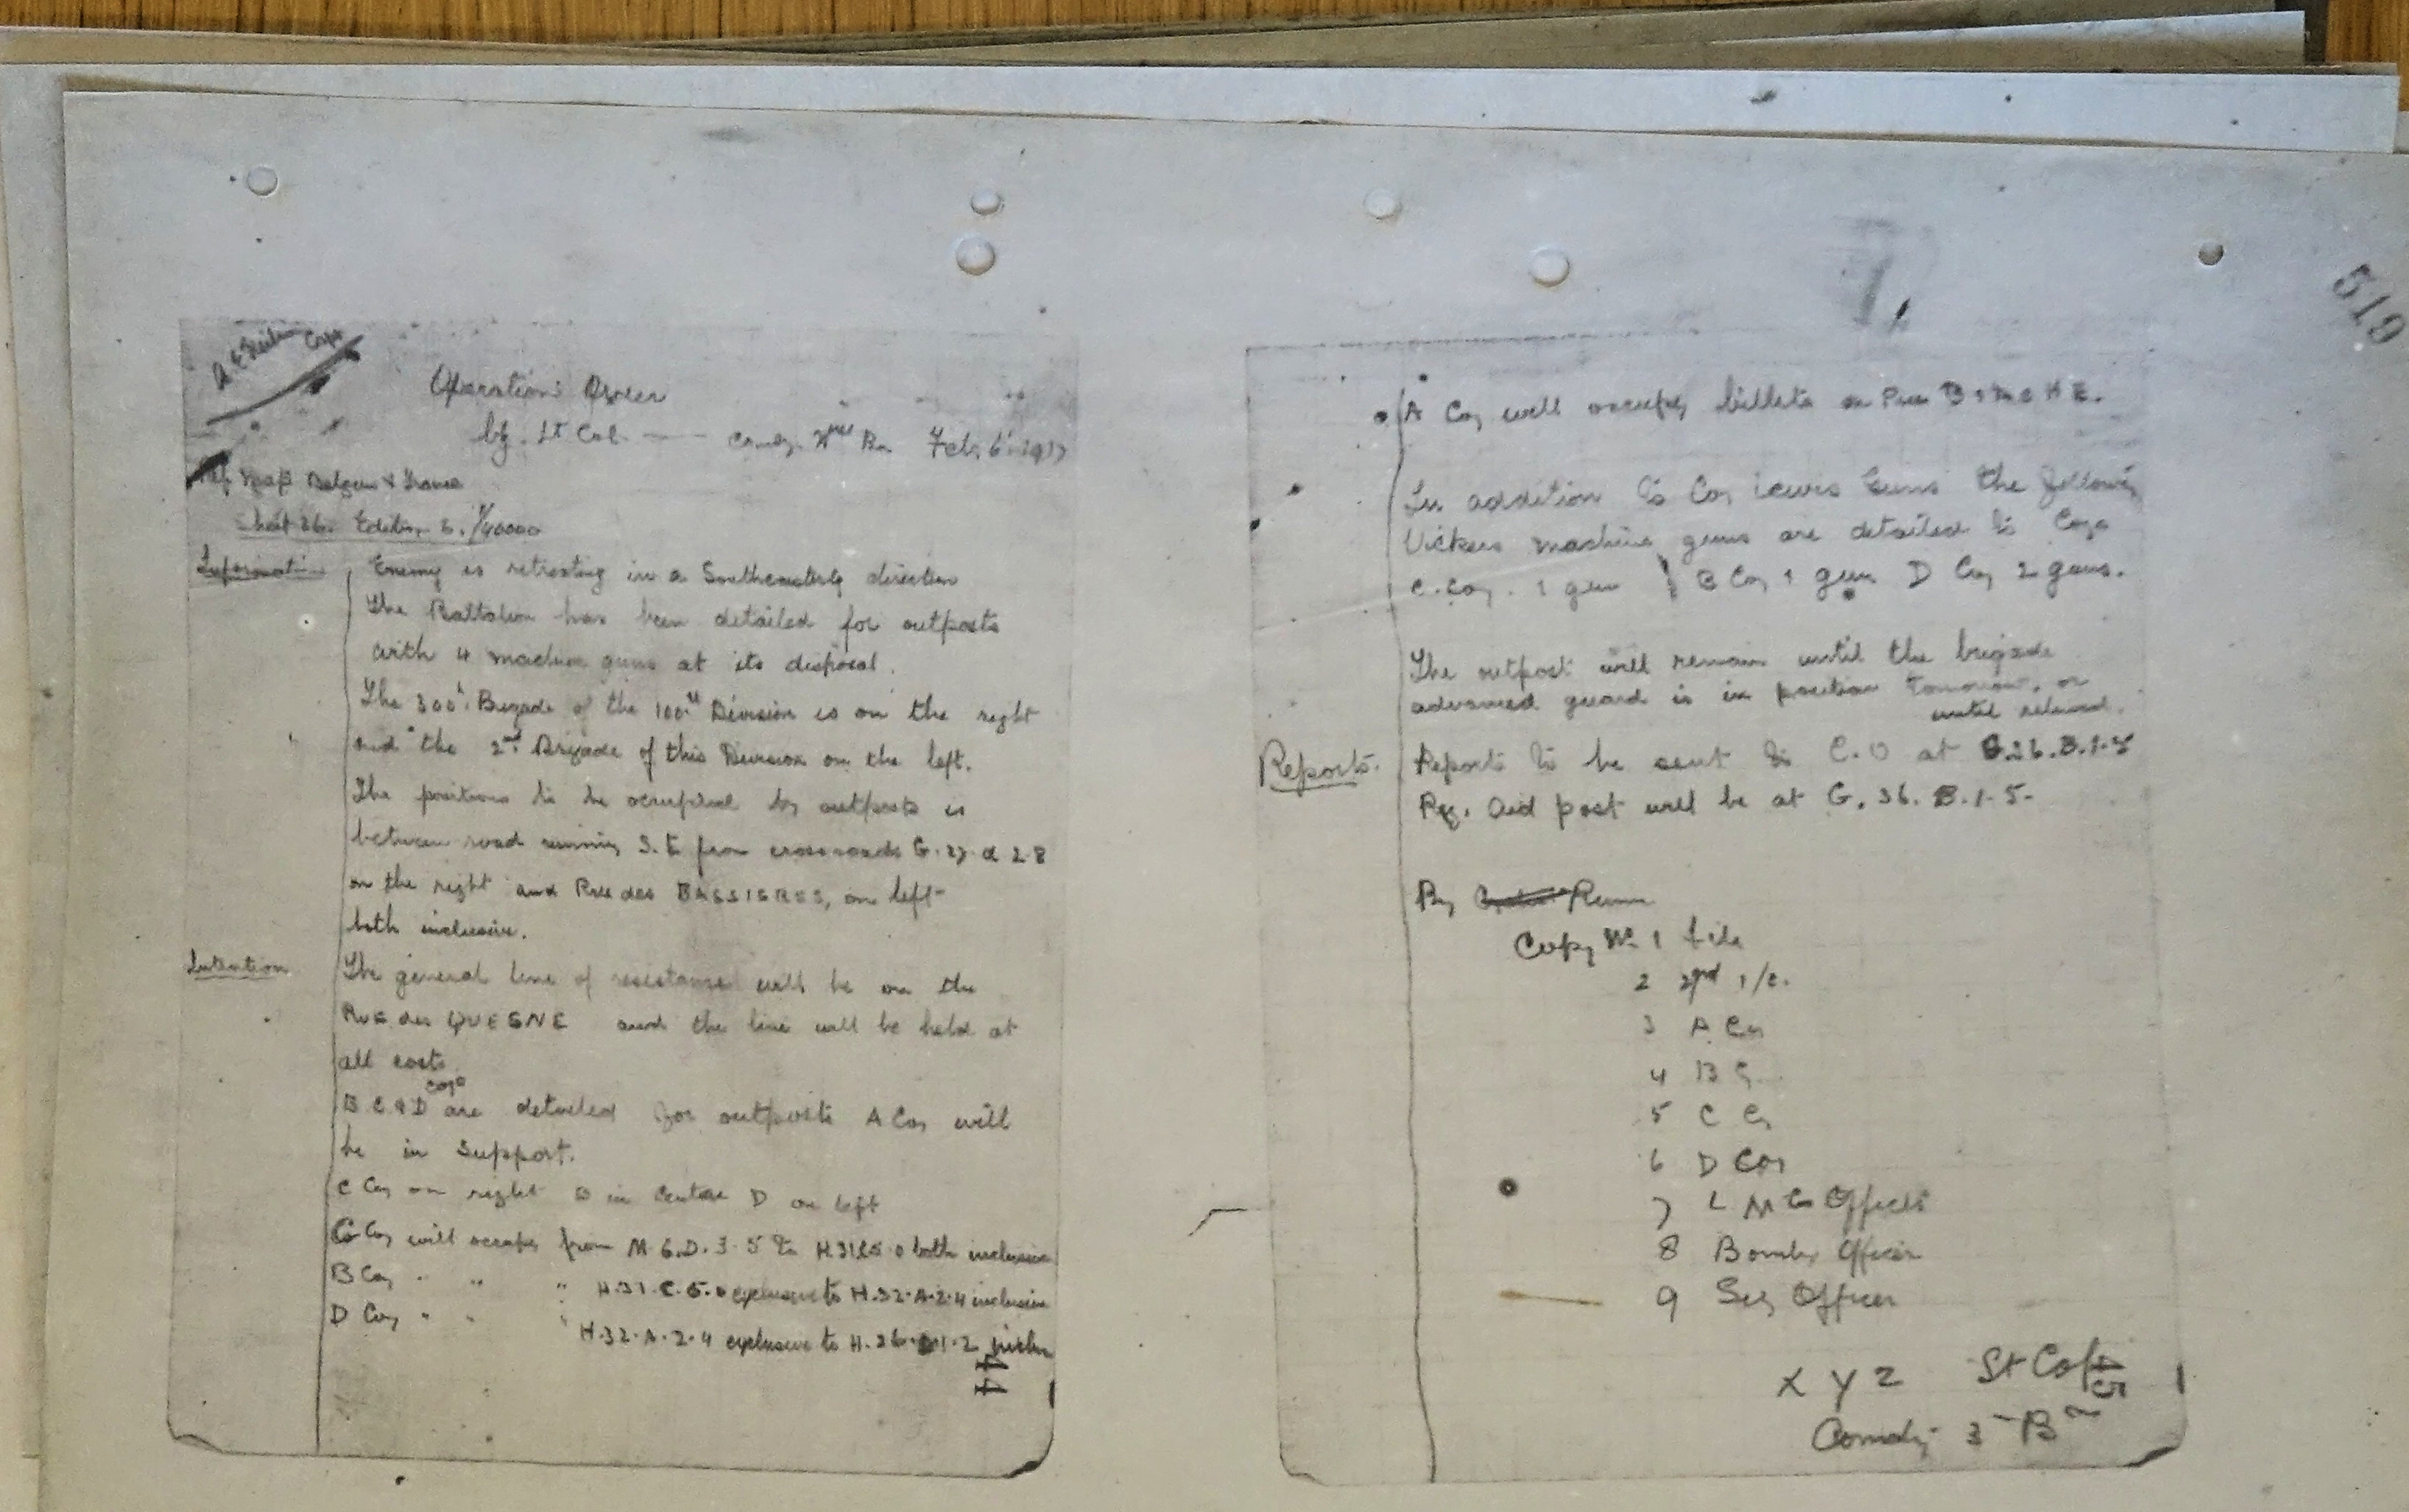 Operation Order
by Lt Col —— Comdg. Bn Feb. 6 1917
Ref Map Belgium & France
Sheet 36. Edition 6. 1/40000
Information
Enemy is retreating in a Southeasterly direction
The Battalion has been detailed for outposts
with 4 machine guns at its disposal.
The 300th Brigade of the 100th Division is on the right
and the 2nd Brigade of this Division on the left.
The positions to be occupied by outposts is
between road running S.E from crossroads G.27.a 2.8
on the right and Rue des BASSIERES, on left
both inclusive.
Intention
The general line of resistance will be on the
Rue des QUESNE and the line will be held at
all costs
Coys
B C & D are detailed for outposts A Coy will
be in Support.
C Coy on right B in Centre D on left
C Coy will occupy from M.6.D.3.5 to H.31.C.5.0 both inclusive
B Coy " " " H.31.C.5.0 exclusive to H.32.A.2.4 inclusive
D Coy " " " H.32.A.2.4 exclusive to H.26. 1.2
44
7.
519
A Coy will occupy billets on Rue
In addition to Coy Lewis Guns the following
Vickers machine guns are detailed to Coys
C. Coy. 1 gun B Coy 1 gun D Coy 2 guns.
The outpost will remain until the brigade
advanced guard is in position tomorrow, or
until relieved.
Reports.
Reports to be sent to C.O at G.36.B.1.5
Rg. Aid post will be at G. 36. B.1.5.
By Runner
Copy No. 1 file
2 2nd i/c.
3 A Coy
4 B Coy
5 C Coy
6 D Coy
7 L M G Officer
8 Bomby Officer
9 Sig Officer
X Y Z Lt Col
45
Comdg 3rd Bn